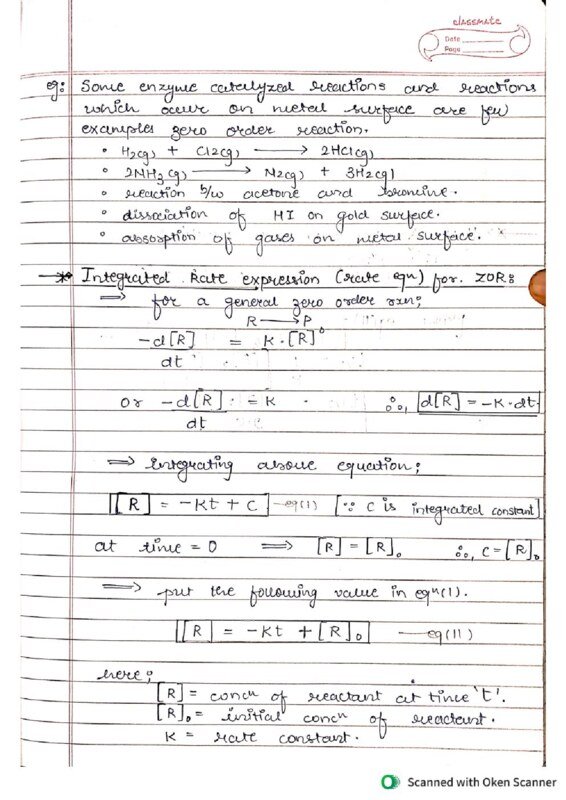 classmate
Date
Page
eg: Some enzyme catalyzed reactions and reactions
which occur on metal surface are few
examples zero order reaction.
• H2(g) + Cl2(g) ⟶ 2HCl(g)
• 2NH3(g) ⟶ N2(g) + 3H2(g)
• reaction b/w acetone and bromine.
• dissociation of HI on gold surface.
• absorption of gases on metal surface.
→* Integrated Rate expression (rate eqn) for ZOR:
⇒ for a general zero order rxn;
R ⟶ P
-d[R]/dt = K·[R]⁰
or -d[R]/dt = K ∴, d[R] = -K·dt
⇒ integrating above equation;
[R] = -Kt + C — eq(I) [∵ C is integrated constant]
at time = 0 ⇒ [R] = [R]₀ ∴, C = [R]₀
⇒ put the following value in eqn(I).
[R] = -Kt + [R]₀ — eq(II)
here;
[R] = concn of reactant at time 't'.
[R]₀ = initial concn of reactant.
K = rate constant.
Scanned with Oken Scanner